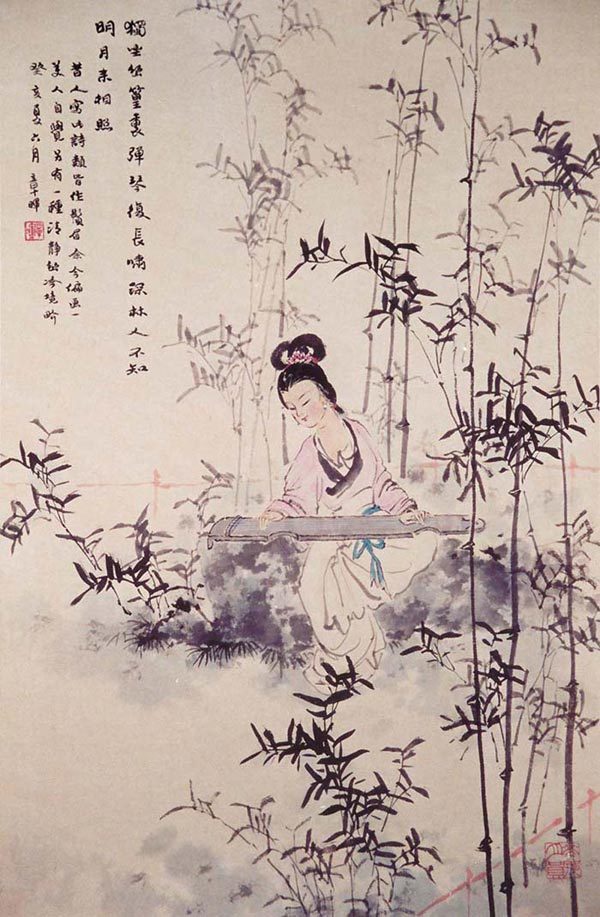 獨坐幽篁裏彈琴復長嘯深林人不知
明月来相照
昔人寫此詩類皆作鬚眉余今偏画一
美人自覺另有一種清静幽冷境畍
癸亥夏六月